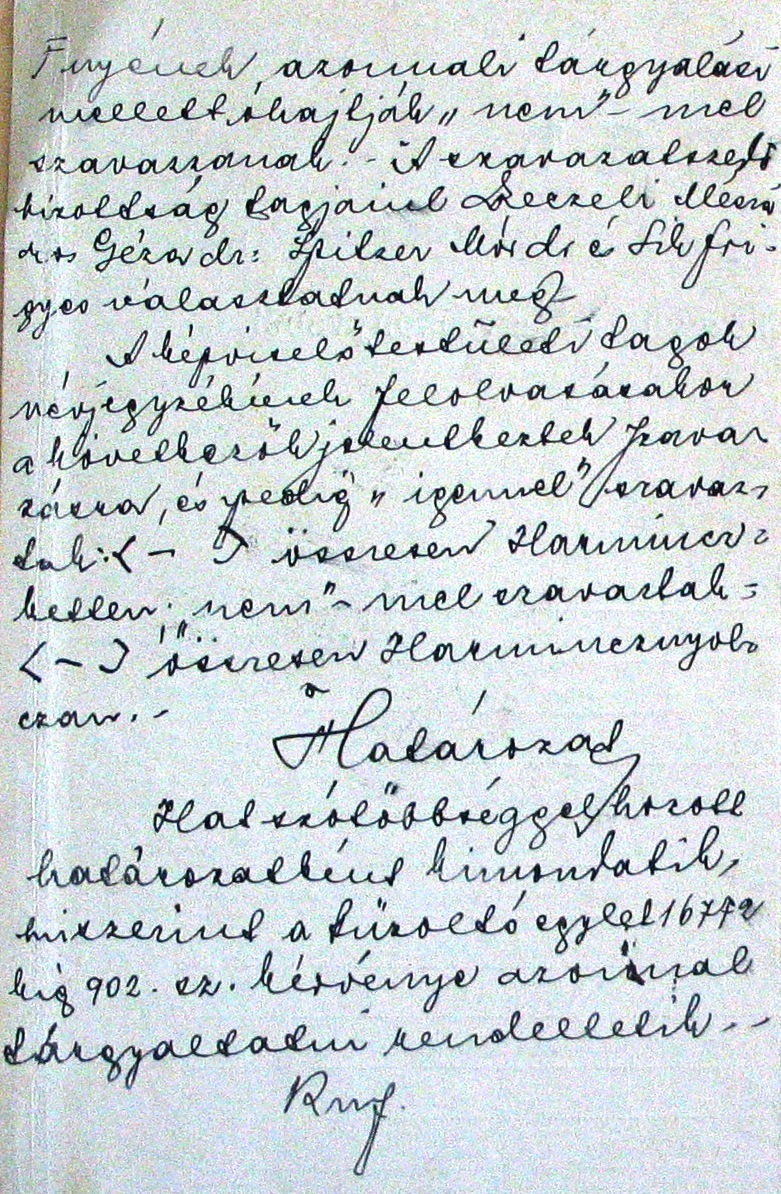 ényének azonnali tárgyalását
mellett óhajtják „nem"-mel
szavazzanak. - A szavazatszedő
bizottság tagjaiul Deczeli Mészá
ros Géza dr: Spitzer Mór dr és Sik Fri-
gyes választatnak meg
A képviselőtestületi tagok
névjegyzékének felolvasásakor
a következők jelentkeztek szava-
zásra, és pedig „igennel" szavaz-
tak: <-> összesen Harmincz-
ketten; „nem"-mel szavaztak =
<-> összesen Harmincznyol-
czan. -
Határozat
Hat szótöbbséggel hozott
határozatként kimondatik,
miszerint a tűzoltó egylet
kig 902. sz. kérvénye azonnal
tárgyaltatni rendeltetik - -
Kmf.